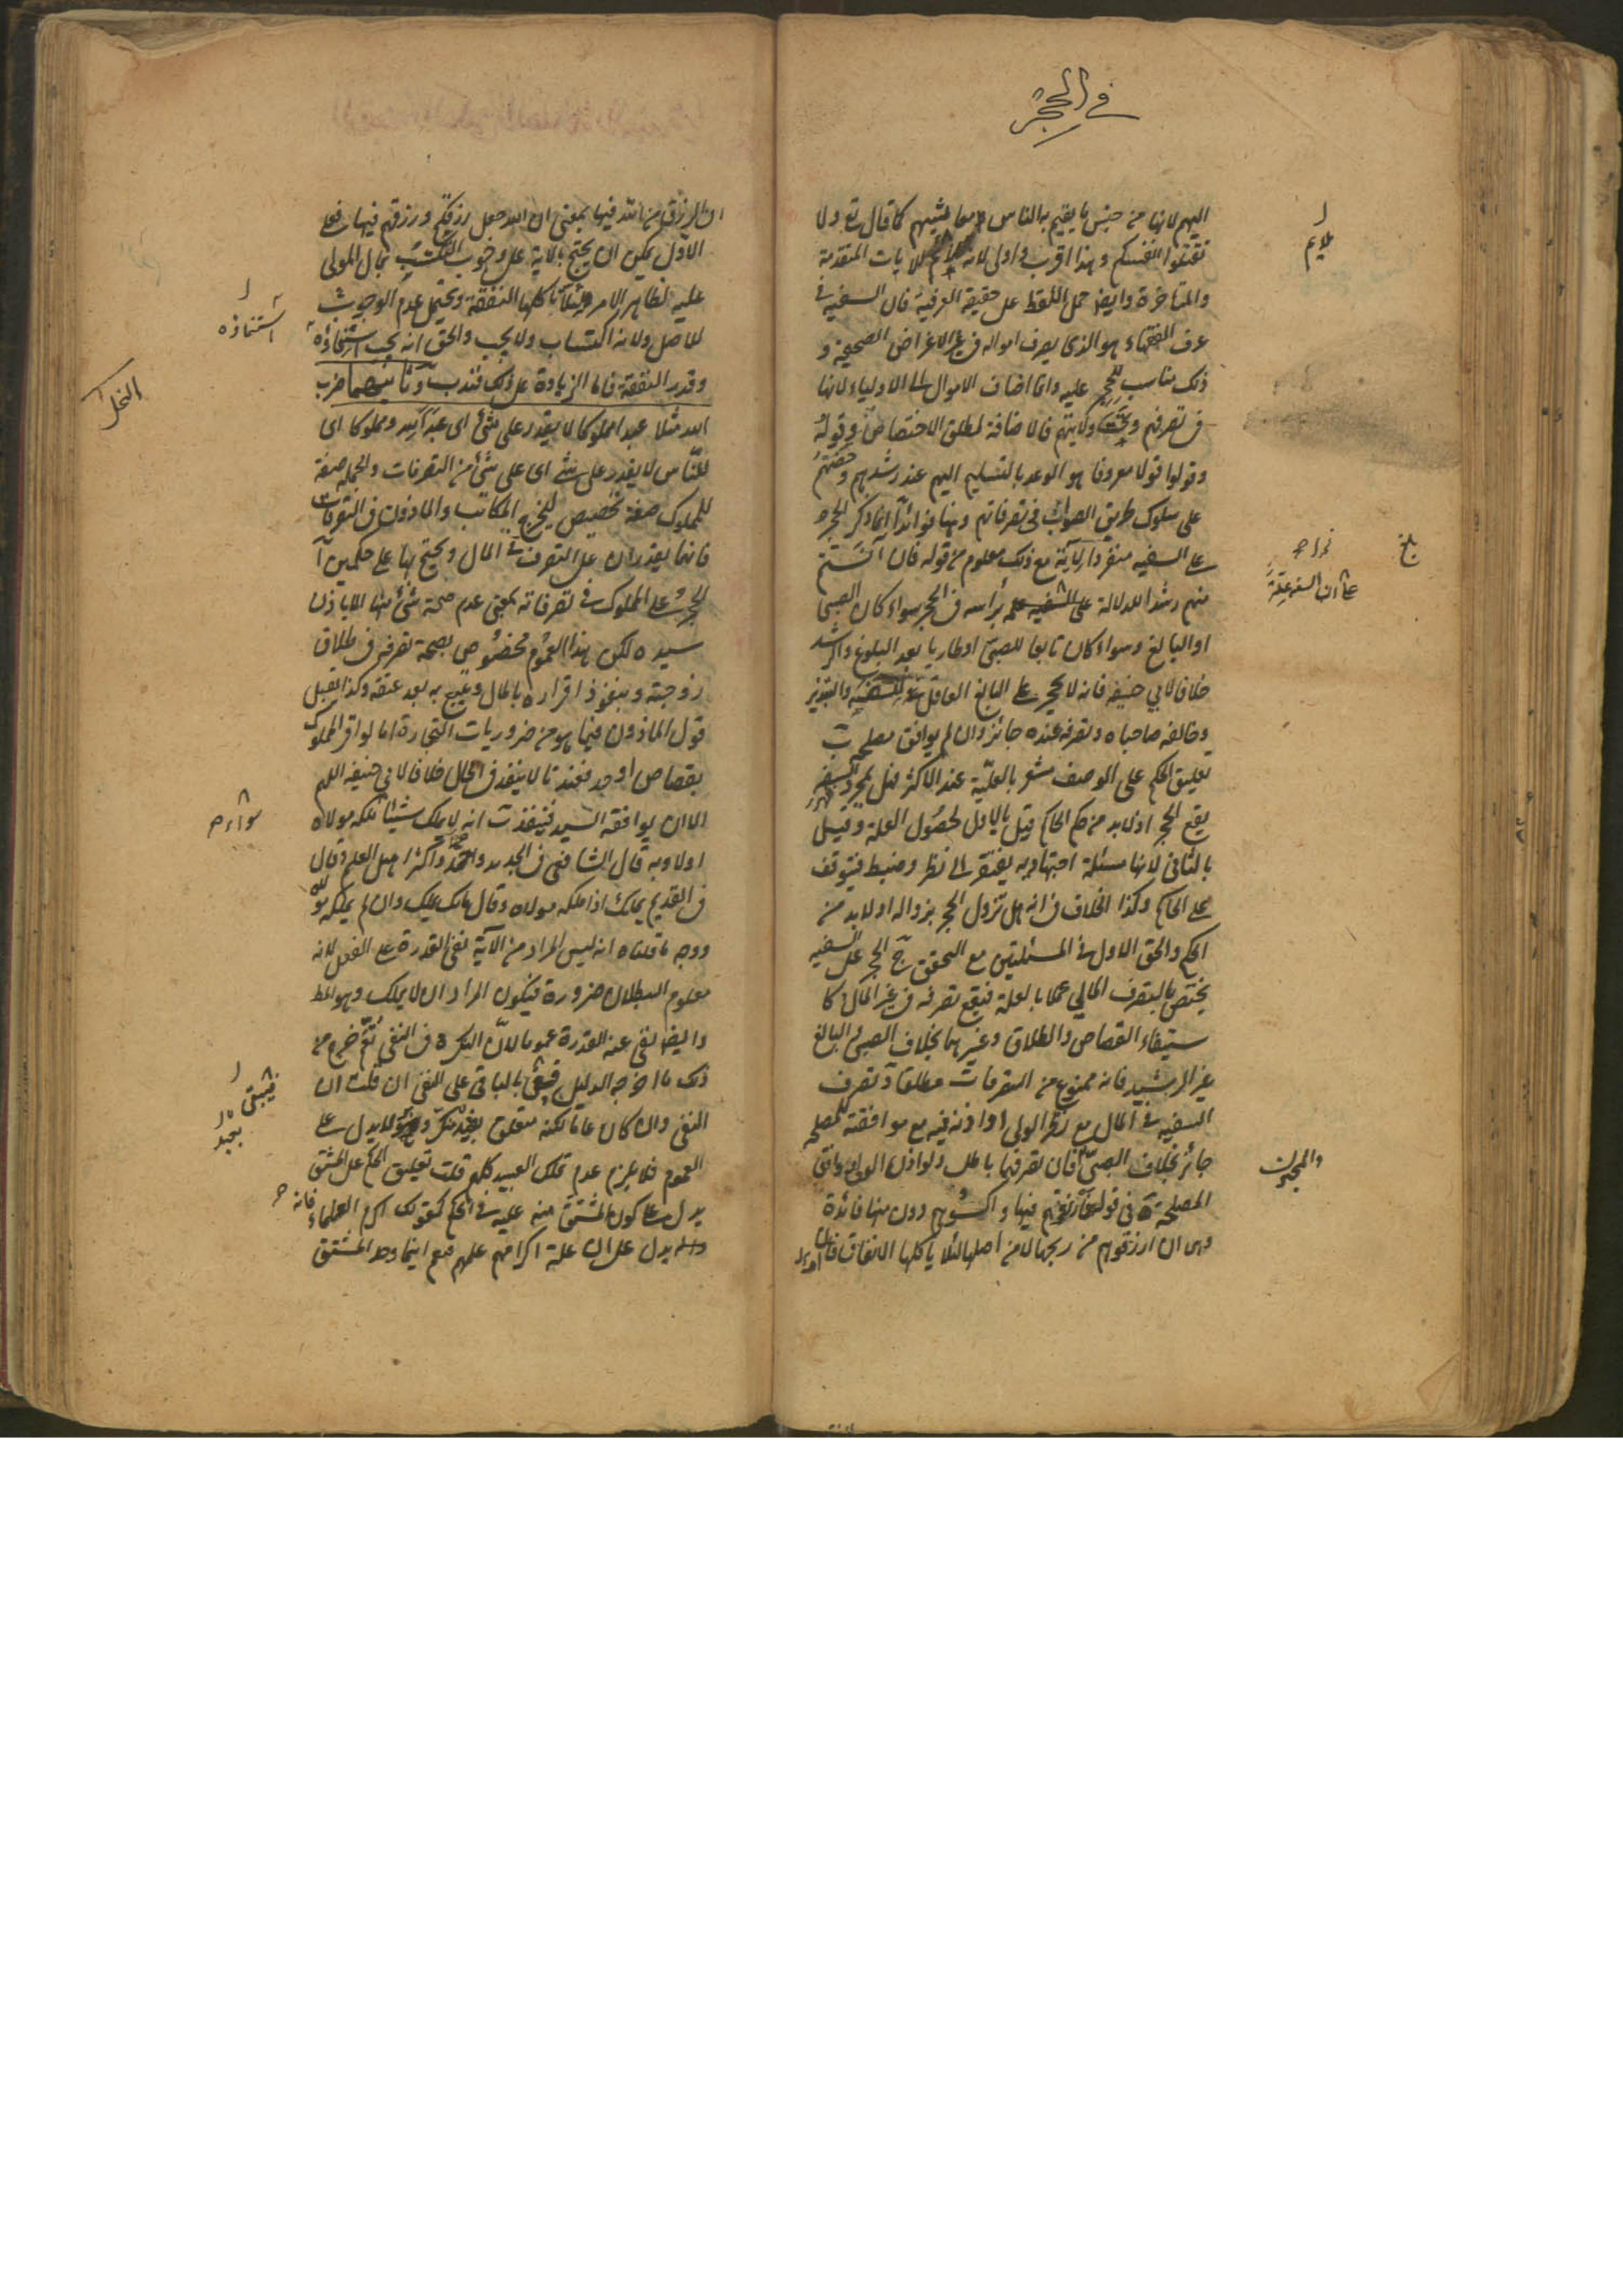 في الحجر
اليهم لانها من جنس ما يقيم به الناس معايشهم كما قال تع ولا
تقتلوا انفسكم وهذا اقرب واولى لانه ملايم للايات المتقدمة
والمتاخرة وايضا حمل اللفظ على حقيقة العرفية فان السفيه في
عرف الفقهاء هو الذى يصرف امواله في غير الاغراض الصحيحة و
ذلك مناسب للحجر عليه وانما اضاف الاموال الى الاولياء لانها
في تصرفهم وتحت ولايتهم فالاضافة لمطلق الاختصاص وقوله
وقولوا قولا معروفا هو الوعد بالتسليم اليهم عند رشدهم
على سلوك طريق الصواب في تصرفاتهم وهنا فوائد آ انما ذكر الحجر
على السفيه منفردا بآية مع ذلك معلوم من قوله فان آنستم
منهم رشدا للدلالة على السفيه علة براسه في الحجر سواء كان الصبى
او البالغ وسواء كان تابعا للصبى او طاريا بعد البلوغ والرشد
خلافا لابي حنيفه فانه لا يحجر على البالغ العاقل للسفه والتبذير
وخالفه صاحباه وتصرفه عنده جائز وان لم يوافق مصلحة ب
تعليق الحكم على الوصف مشعر بالعلية عند الاكثر فهل بمجرد السفه
يقع الحجر او لا بد من حكم الحاكم قيل بالاول لحصول العلة وقيل
بالثاني لانها مسئلة اجتهادية يفتقر الى نظر وضبط فيتوقف
على الحاكم وكذا الخلاف في انه هل تزول الحجر بزواله او لا بد من
الحكم والحق الاول في المسئلتين مع التحقق ج الحجر على السفيه
يختص بالتصرف المالي عملا بالعلة فيقع تصرفه في غير المال كا
ستيفاء القصاص والطلاق وغيرهما بخلاف الصبى والبالغ
غير الرشيد فانه ممنوع من التصرفات مطلقا د تصرف
السفيه في المال مع الولى او اذنه فيه مع موافقته للمصلحة
جائز بخلاف الصبى فان تصرفهما باطل ولو اذن الولى ووافق
المصلحة ه في قوله وارزقوهم فيها واكسوهم دون منها فائدة
وهى ان ارزقوهم من ربحها لا من اصلها لئلا ياكلها الانفاق
ملايم
بلغ
على ان السفه علة
والمجنون
ان الرزق من الله فيها بمعنى ان الله جعل رزقكم ورزقهم فيها فعلى
الاول يمكن ان يحتج بالاية على وجوب التكسب بمال المولى
عليه لظاهر الامر ولئلا تاكلها النفقة ويحتمل عدم الوجوب
للاصل ولانه اكتساب ولا يجب والحق انه يجب استنماؤه
وقدر النفقة فاما الزيادة على ذلك فندب وثانيتهما ضرب
الله مثلا عبدا مملوكا لا يقدر على شئ اى عبدا لله ومملوكا اى
للناس لا يقدر على شئ اى على شئ من التصرفات والجملة صفة
للمملوك صفة تخصيص ليخرج المكاتب والماذون في التصرفات
فانهما يقدران على التصرف في المال ويحتج بها على حكمين آ
الحجر على المملوك في تصرفاته بمعنى عدم صحة شئ منها الا باذن
سيده لكن هذا العموم مخصوص بصحة تصرفه في طلاق
زوجته وبنفوذ اقراره بالمال ويتبع به بعد عتقه وكذا يقبل
قول الماذون فيما هو من ضروريات التجارة اما لو اقر المملوك
بقصاص او حد فعندنا لا ينفذ في الحال خلافا لابي حنيفه اللهم
الا ان يوافقه السيد فينفذ ب انه لا يملك شيئا ملكه مولاه
او لا وبه قال الشافعى في الجديد واحمد واكثر اهل العلم وقال
في القديم يملك اذا ملكه مولاه وقال مالك يملك وان لم يملكه مولاه
ووجه ما قلناه انه ليس المراد من الآية نفى القدرة على الفعل لانه
معلوم البطلان ضرورة فيكون المراد ان لا يملك وهو المط
وايضا نفى عنه القدرة عموما لان النكرة في النفى تعم خرج من
ذلك ما اخرجه الدليل فيبقى الباقى على النفى ان قلت ان
النفى وان كان عاما لكنه متعلق بعبد منكر وهو لا يدل على
العموم فلا يلزم عدم تملك العبيد كلهم قلت تعليق الحكم على المشتق
يدل على كون المشتق منه علة في الحكم كقولك اكرم العلماء فانه
يدل على ان علة اكرامهم علمهم فمع اينما وجد المشتق
استنماؤه
النحل
سواء
فيبقى
بعبد